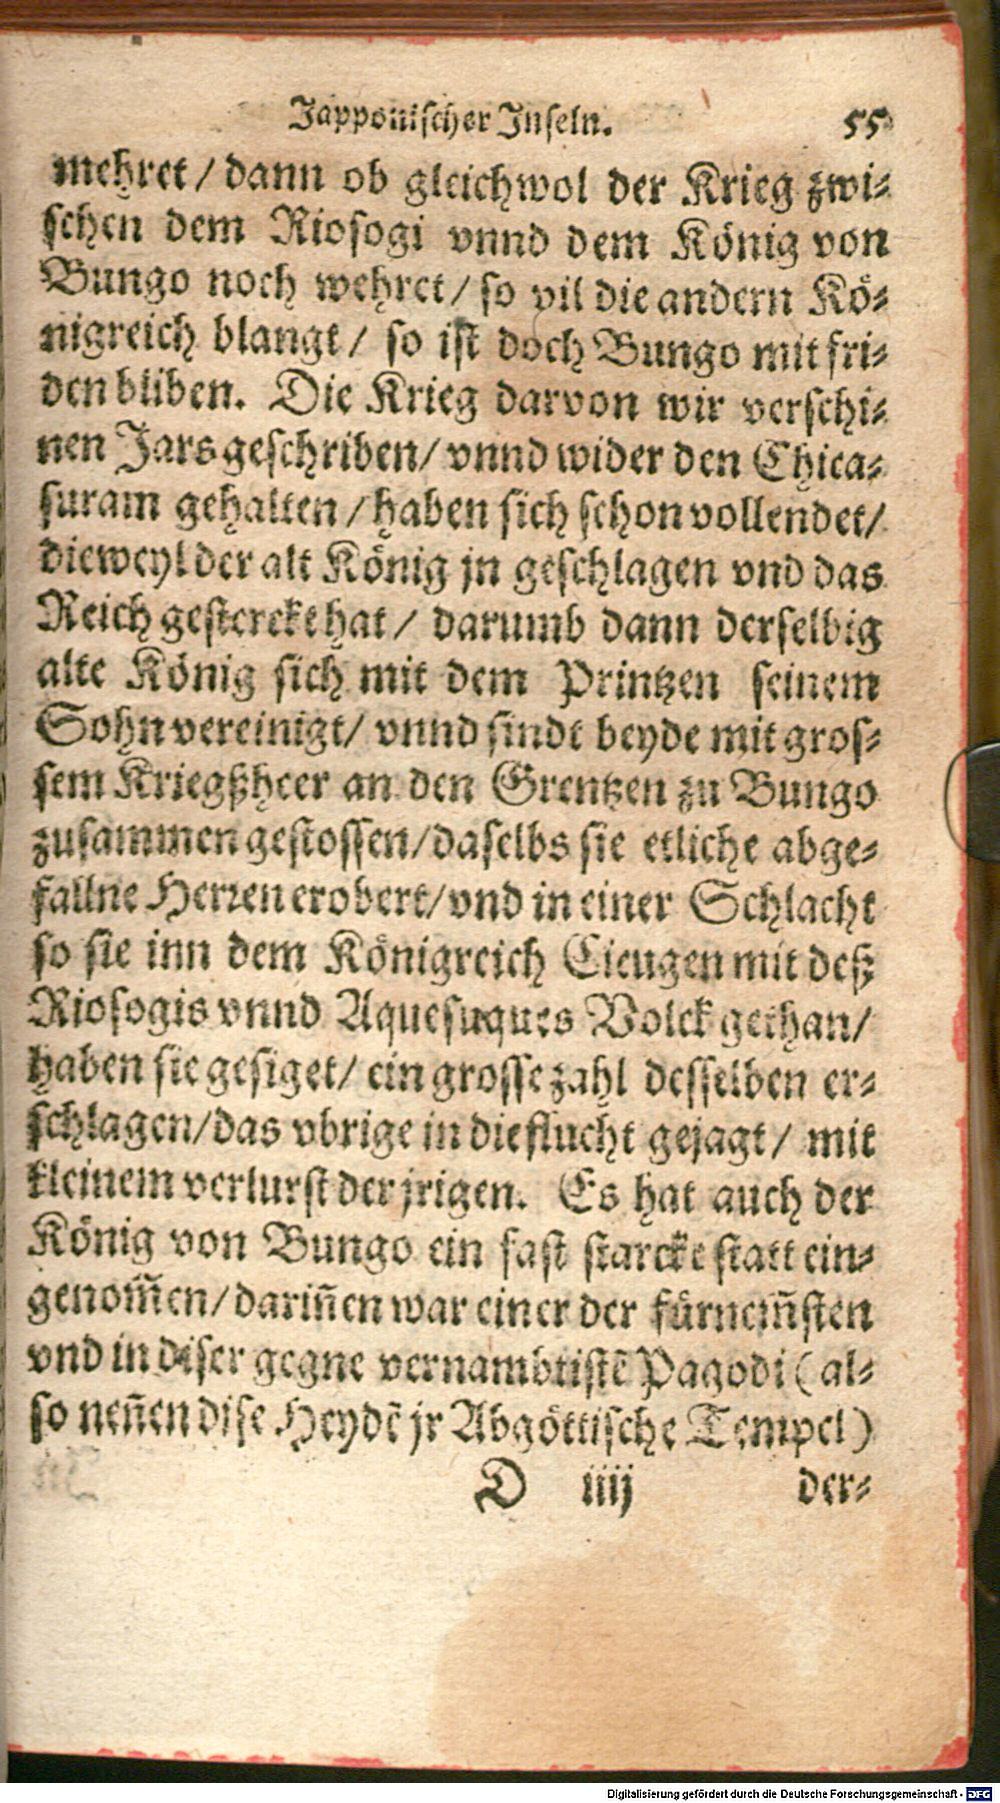 Japponischer Inseln. 55
mehret / dann ob gleichwol der Krieg zwi-
schen dem Riosogi vnnd dem König von
Bungo noch wehret / so vil die andern Kö-
nigreich blangt / so ist doch Bungo mit fri-
den bliben. Die Krieg darvon wir verschi-
nen Jars geschriben / vnnd wider den Chica-
suram gehalten / haben sich schon vollendet /
dieweyl der alt König jn geschlagen vnd das
Reich gesterckt hat / darumb dann derselbig
alte König sich mit dem Printzen seinem
Sohn vereinigt / vnnd sindt beyde mit gros-
sem Kriegßheer an den Grentzen zu Bungo
zusammen gestossen / daselbs sie etliche abge-
fallne Herren erobert / vnd in einer Schlacht
so sie inn dem Königreich Cicugen mit deß
Riosogis vnnd Aquesuques Volck gethan /
haben sie gesiget / ein grosse zahl desselben er-
schlagen / das vbrige in die flucht gejagt / mit
kleinem verlurst der jrigen. Es hat auch der
König von Bungo ein fast starcke statt ein-
genom̃en / dariñen war einer der fürnem̃sten
vnd in diser gegne vernambtistẽ Pagodi ( al-
so neñen dise Heydẽ jr Abgöttische Tempel )
D iiij der-
Digitalisierung gefördert durch die Deutsche Forschungsgemeinschaft - DFG